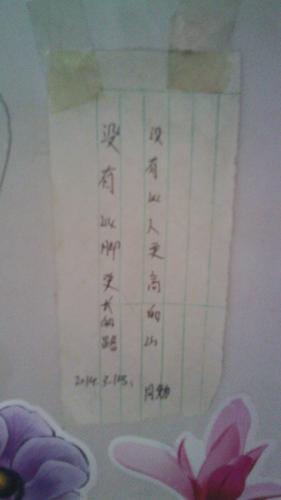 没有比人更高的山
没有比脚更长的路
2014.3.